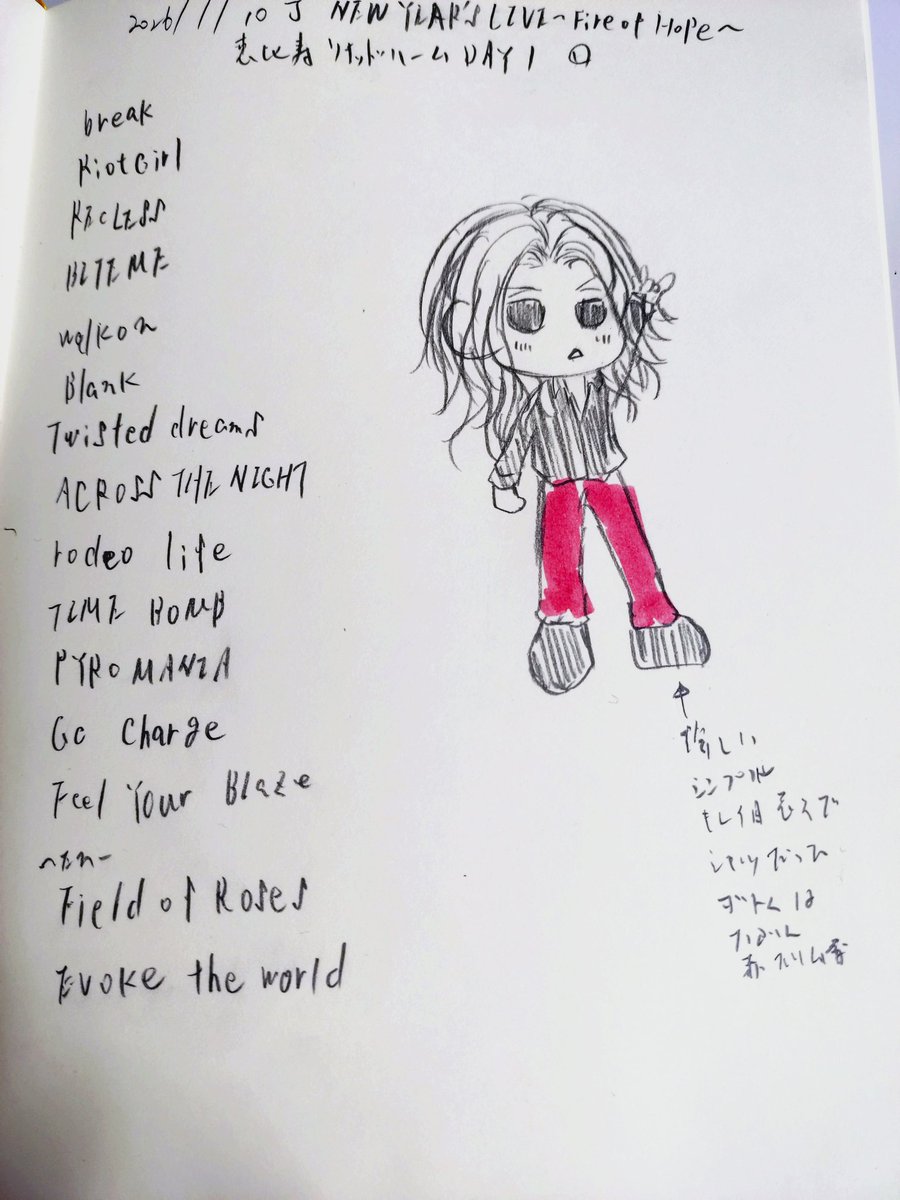 2026/1/10 J NEW YEAR'S LIVE～Fire of Hope～
恵比寿リキッドルーム DAY1
break
RiotGirl
RECLESS
BITE ME
walkon
Blank
Twisted dreams
ACROSS THE NIGHT
rodeo life
TIME BOMB
PYROMANIA
Go Charge
Feel Your Blaze
Field of Roses
Evoke the world
↑
珍しい
シンプル
シャツだった
ボトムは